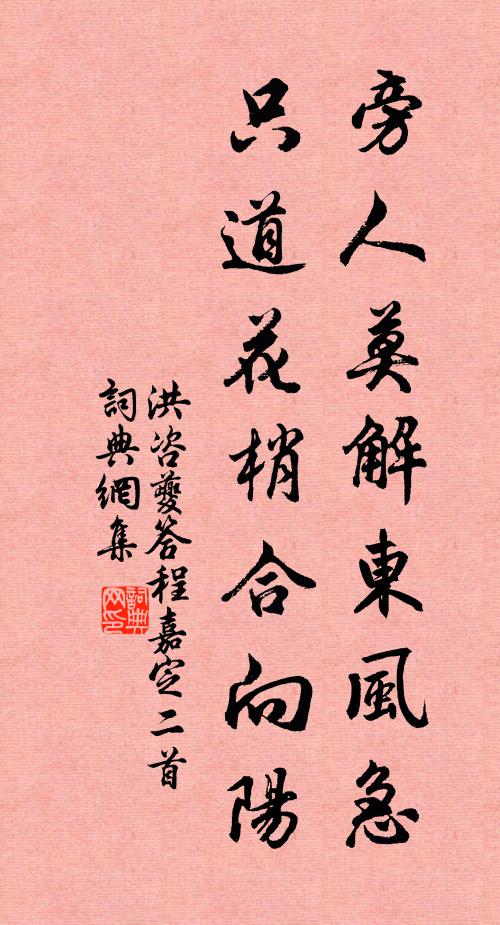 旁人莫解東風急
只道花梢合向陽
洪咨夔答程嘉定二首
詞典網集
詞典网印